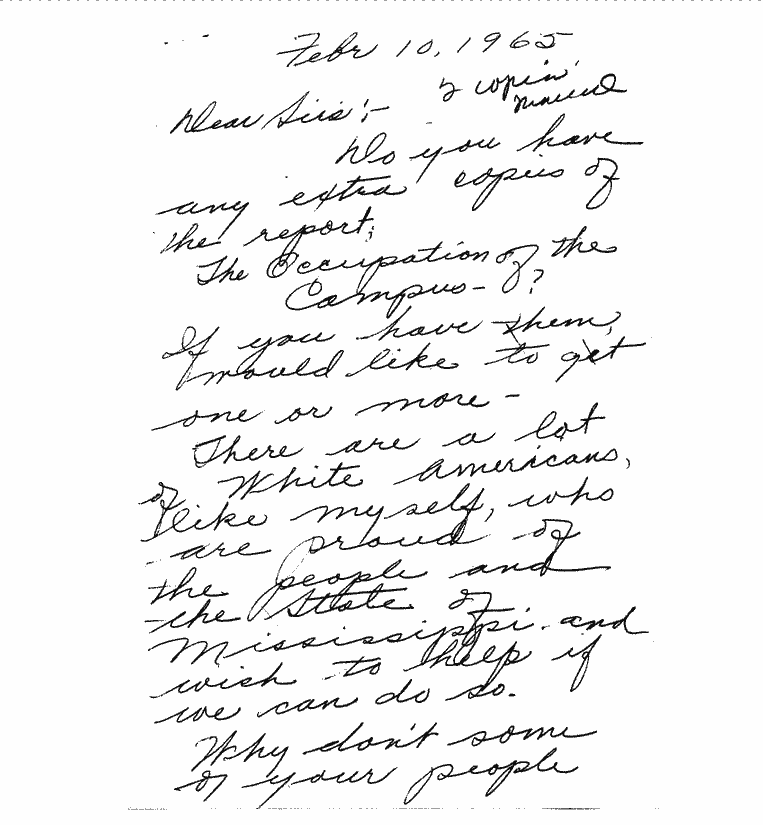 Febr 10, 1965
2 copies
mailed
Dear Sirs:-
Do you have
any extra copies of
the report;
The Occupation of the
Campus-?
If you have them,
would like to get
one or more-
There are a lot
of White Americans,
like myself, who
are proud of
the people and
the State of
Mississippi and
wish to help if
we can do so.
Why don't some
of your people